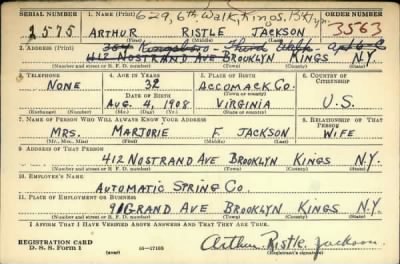 SERIAL NUMBER 1. NAME (Print) 629, 6th Walk, Kings, Bklyn ORDER NUMBER
2575 ARTHUR RISTLE JACKSON 3563
(First) (Middle) (Last)
2. ADDRESS (Print) 384 Kingsboro - Third Walk apt 6E
412 NOSTRAND AVE BROOKLYN KINGS N.Y.
(Number and street or R. F. D. number) (Town) (County) (State)
3. TELEPHONE 4. AGE IN YEARS 5. PLACE OF BIRTH 6. COUNTRY OF CITIZENSHIP
NONE 32 ACCOMACK CO.
DATE OF BIRTH
AUG. 4, 1908 VIRGINIA U.S.
(Exchange) (Number) (Mo.) (Day) (Yr.) (State or country)
7. NAME OF PERSON WHO WILL ALWAYS KNOW YOUR ADDRESS 8. RELATIONSHIP OF THAT PERSON
MRS. MARJORIE F. JACKSON WIFE
(Mr., Mrs., Miss) (First) (Middle) (Last)
9. ADDRESS OF THAT PERSON
412 NOSTRAND AVE BROOKLYN KINGS N.Y.
(Number and street or R. F. D. number) (Town) (County) (State)
10. EMPLOYER'S NAME
AUTOMATIC STRING CO.
11. PLACE OF EMPLOYMENT OR BUSINESS
91 GRAND AVE BROOKLYN KINGS N.Y.
(Number and street or R. F. D. number) (Town) (County) (State)
I AFFIRM THAT I HAVE VERIFIED ABOVE ANSWERS AND THAT THEY ARE TRUE.
REGISTRATION CARD
D. S. S. Form 1 (over) 16-17105 Arthur Ristle Jackson
(Registrant's signature)